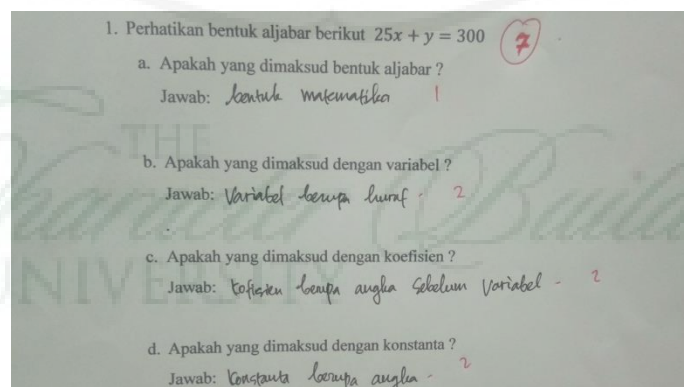 1. Perhatikan bentuk aljabar berikut 25x + y = 300 7
a. Apakah yang dimaksud bentuk aljabar ?
Jawab: bentuk matematika 1
THE
b. Apakah yang dimaksud dengan variabel ?
Jawab: Variabel berupa huruf. 2
Character Buil
c. Apakah yang dimaksud dengan koefisien ?
UNIVERSITY
Jawab: Kofisien berupa angka Sebelum Variabel - 2
d. Apakah yang dimaksud dengan konstanta ?
Jawab: Konstanta berupa angka - 2